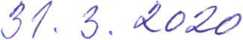 31. 3. 2020